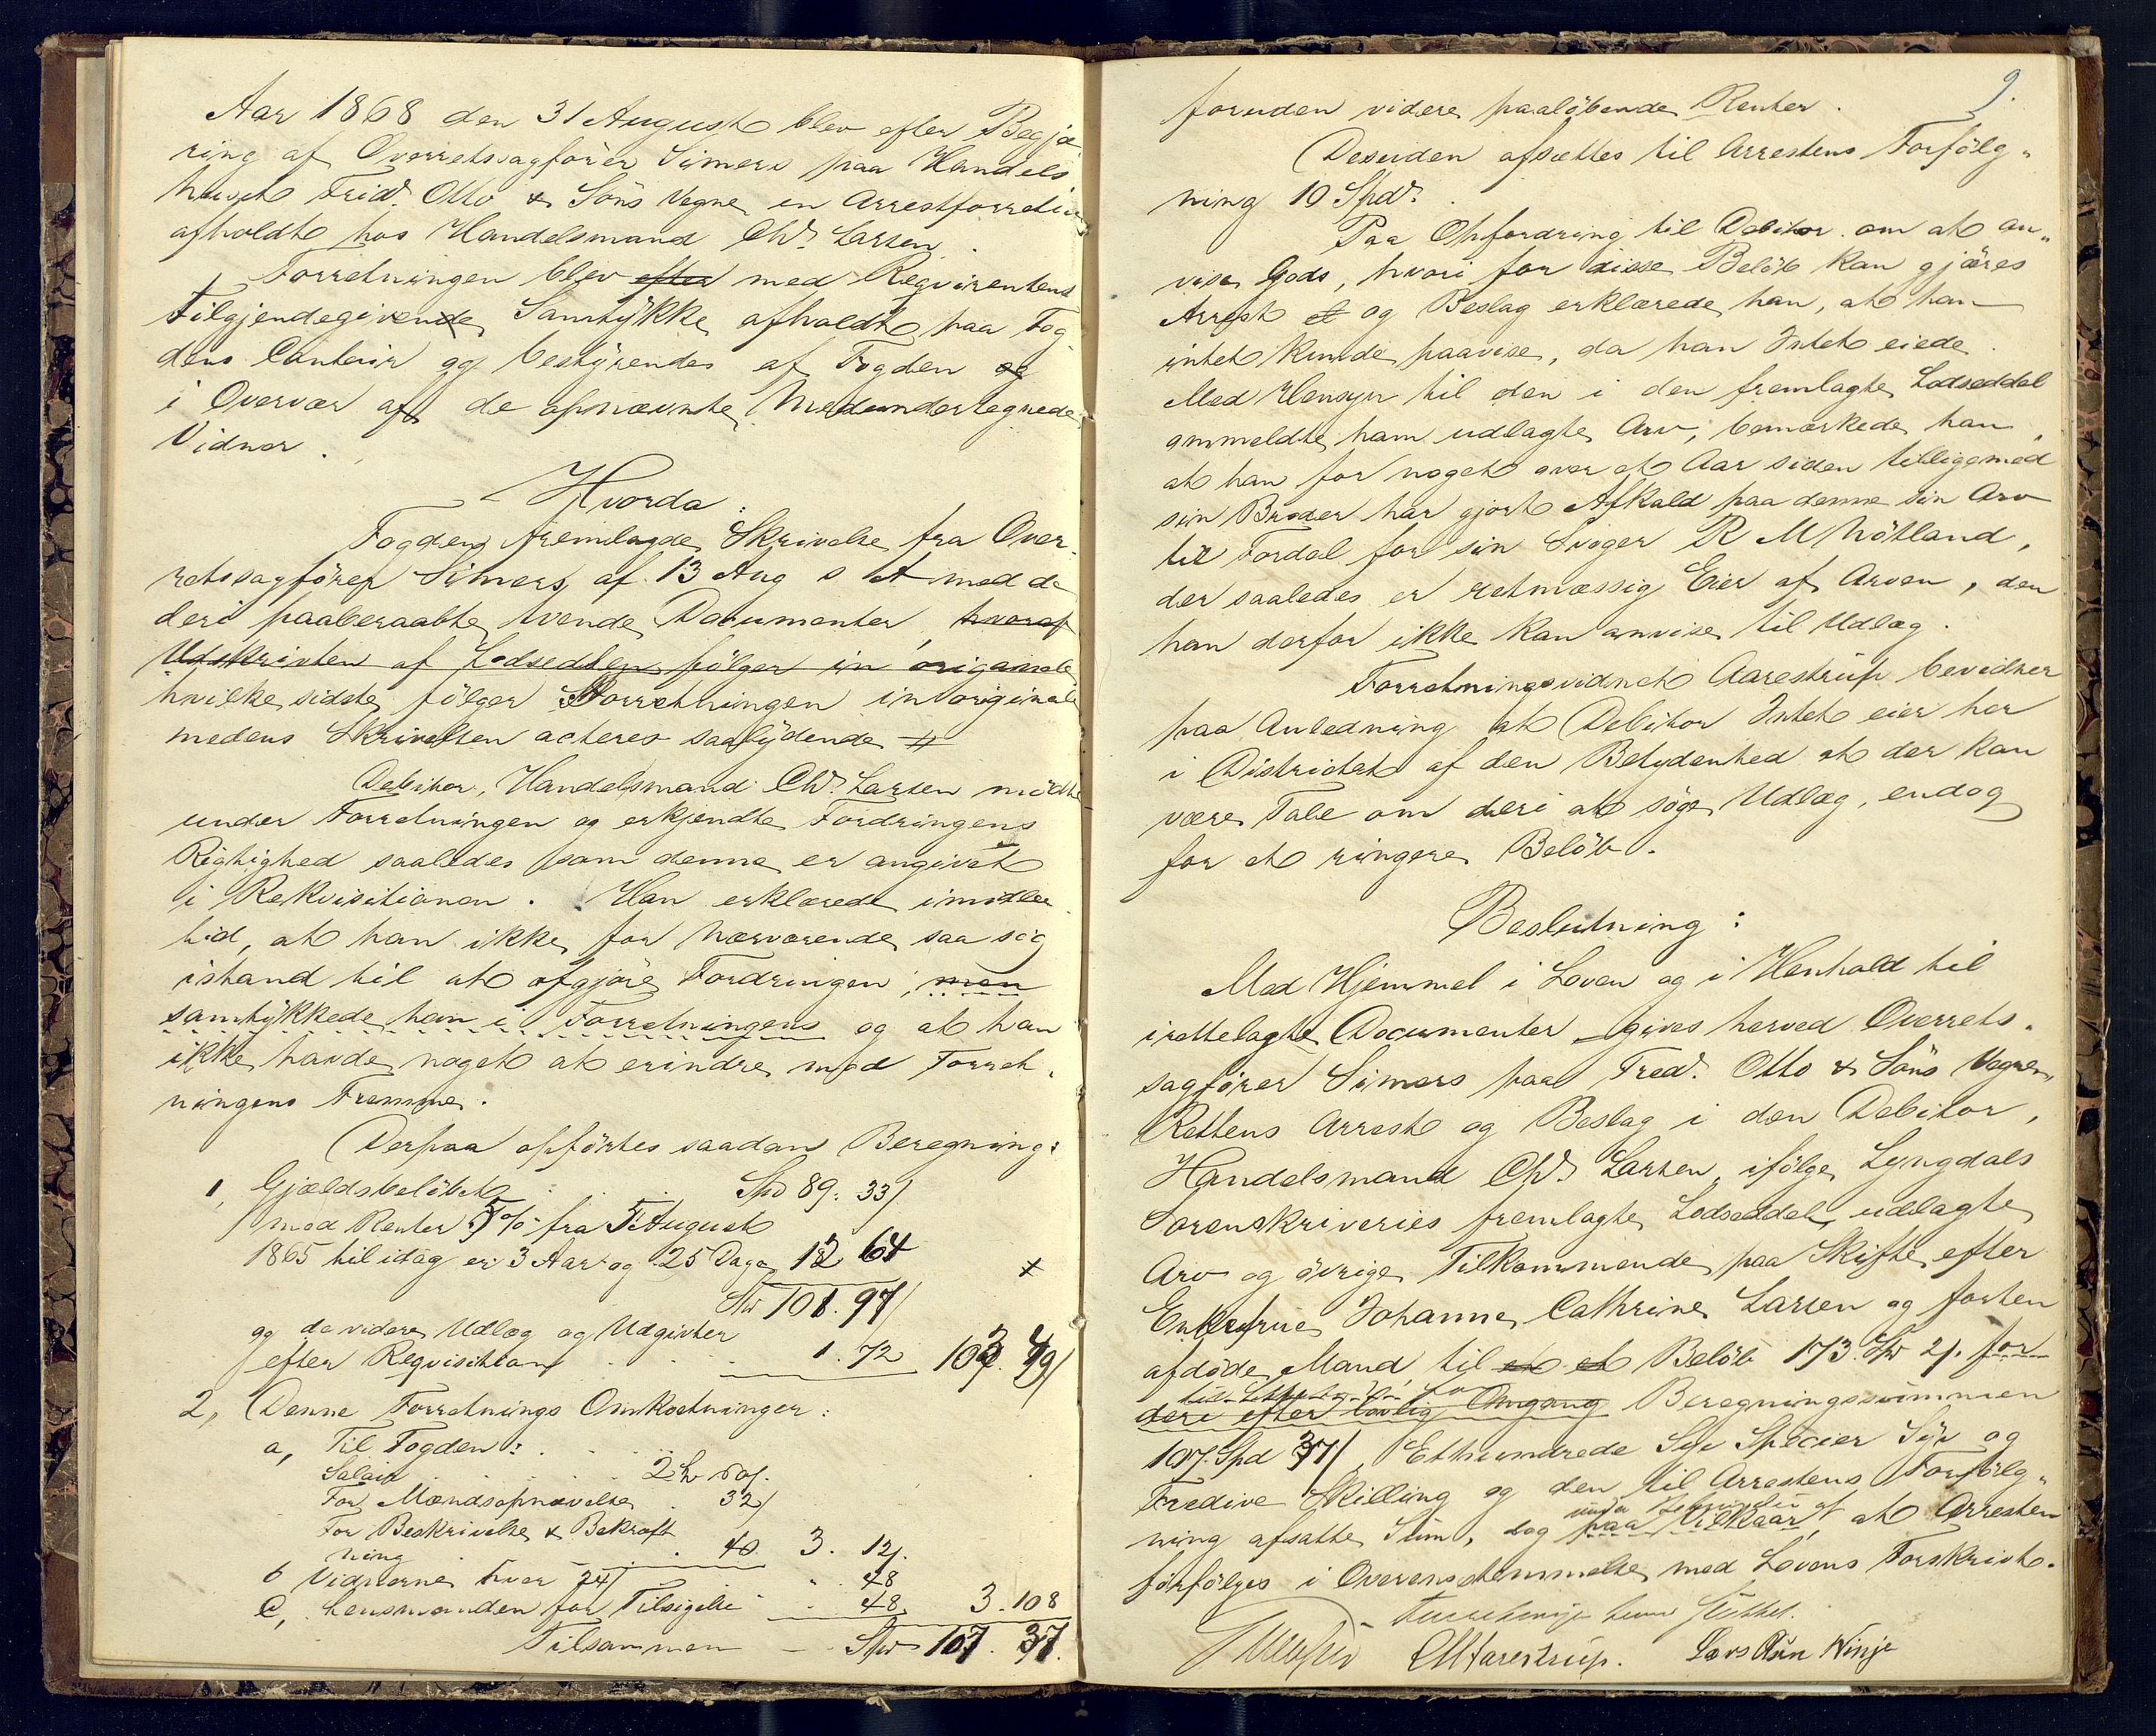 Aar 1868 den 31 August blev efter Begjæ
ring af Overretssagfører Simers paa Handels
huset Fridr. Otto & Søns Vegne en Arrestforretn
afholdt hos Handelsmand Chr. Larsen.
Forretningen blev efter med Reqvirentens
tilgjendegivende Samtykke afholdt paa Fog
dens Contoir og bestyrendes af Fogden og
i Overvær af de opnævnte Medundertegnede
Vidner.
Hvorda:
Fogden fremlagde Skrivelse fra Over
retssagfører Simers af 13 Aug s A med de
deri paaberaabte tvende Documenter, hvoraf
Udskrivten af Lodsedlen følger in originale
hvilke sidste følger Forretningen in originale
medens Skrivelsen acteres saalydende #
Debitor, Handelsmand Chr. Larsen mødte
under Forretningen og erkjendte Fordringens
Rigtighed saaledes som denne er angivet
i Rekvisitionen. Han erklærede imidler
tid, at han ikke for Nærværende saa sig
istand til at afgjøre Fordringen, men
samtykkede han i Forretningens og at han
ikke havde noget at erindre mod Forret
ningens Fremme.
Derpaa opførtes saadan Beregning:
1, Gjældsbeløbet Spd 89. 33/
med Renter 5% fra 5 August
1865 til idag er 3 Aar og 25 Dage 12 64
Spd 101. 97/
og de videre Udlæg og Udgivter
efter Reqvisition 1. 72 103 49/
2, Denne Forretnings Omkostninger:
a, Til Fogden:
Salair 2
For Mændsopnævelse 32/
For Beskrivelse & Bekræft
ning 40 3. 12/.
b Vidnerne hver 24/ 48
c, Lensmanden for Tilsigelse 48 3. 108
Tilsammen Spd 107. 37.
9.
foruden videre paaløbende Renter.
Desuden afsættes til Arrestens Forfølg„
ning 10 Spd.
Paa Opfordring til Debitor om at an„
vise Gods, hvori for disse Beløb kan gjøres
Arrest et og Beslag erklærede han, at han
intet kunde paavise, da han Intet eiede.
Med Hensyn til den i den fremlagte Lodseddel
ommeldte ham udlagte Arv, bemærkede han,
at han for noget over et Aar siden tilligemed
sin Broder har gjort Afkald paa denne sin Arv
til Fordel for sin Svoger R M Møtland,
der saaledes er retmæssig Eier af Arven, den
han derfor ikke kan anvise til Udlæg.
Forretningsvidnet Aarestrup bevidner
paa Anledning at Debitor Intet eier her
i Districtet af den Betydenhed at der kan
være Tale om deri at søge Udlæg, endog
for et ringere Beløb.
Beslutning:
Med Hjemmel i Loven og i Henhold til
irettelagte Documenter gives herved Overrets„
sagfører Simers paa Fred. Otto & Søns Vegne,
Rettens Arrest og Beslag i den Debitor,
Handelsmand Chr. Larsen, ifølge Lyngdals
Sorenskriveries fremlagte Lodseddel, udlagte
Arv og øvrige Tilkommende paa Skifte efter
Enkefrue Johanne Cathrine Larsen og forhen
afdøde Mand til et Beløb 173. Spd 2/. for
deri efter lovlig Omgang Beregningssummen
107. Spd 37/, Ethundrede Syv Specier Syv og
Tredive Skilling og den til Arrestens Forfølg„
ning afsatte Sum, dog paa Vilkaar, at Arresten
forfølges i Overensstemmelse med Lovens Forskrivt.
CMAarestrup. Lars Olsen Ninje